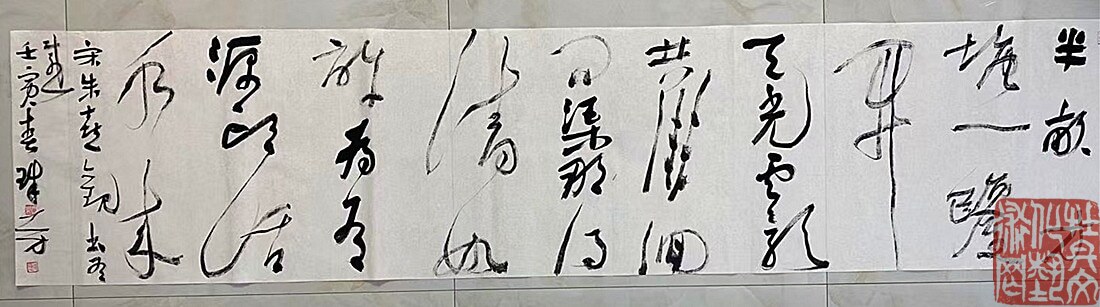 半畝方
塘一鑑
開
天光雲影
共徘徊
问渠那得
清如
許為有
源頭活
水来
宋朱熹觀書有
感
壬寅春